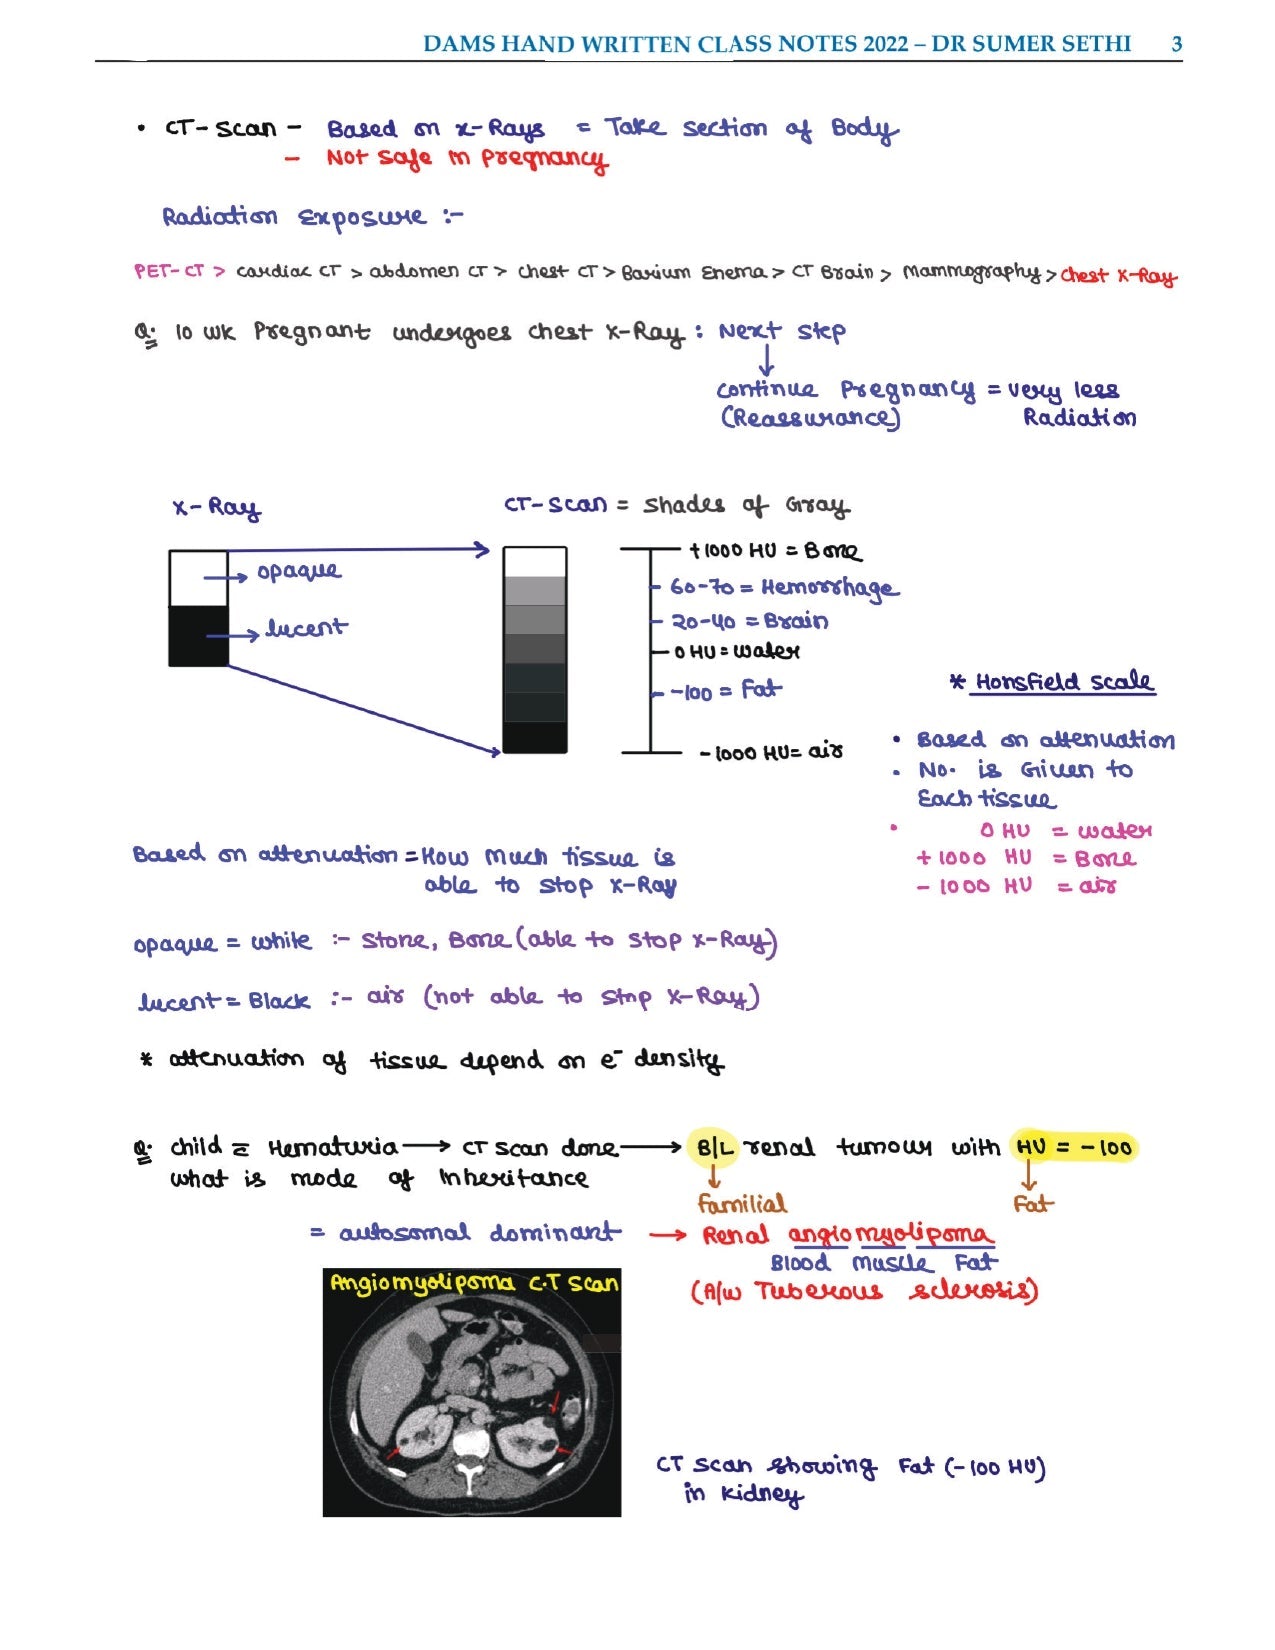 DAMS HAND WRITTEN CLASS NOTES 2022 – DR SUMER SETHI 3
• CT-Scan - Based on x-Rays = Take section of Body
- Not safe in pregnancy
Radiation Exposure :-
PET-CT > cardiac CT > abdomen CT > chest CT > Barium Enema > CT Brain > Mammography > chest X-Ray
Q: 10 wk Pregnant undergoes chest X-Ray : Next step
continue Pregnancy = very less
(Reassurance) Radiation
X-Ray
CT-Scan = shades of Gray
opaque
lucent
+1000 HU = Bone
60-70 = Hemorrhage
20-40 = Brain
0 HU = water
-100 = Fat
-1000 HU = air
* Honsfield scale
• Based on attenuation
• No. is Given to
Each tissue
• 0 HU = water
+1000 HU = Bone
-1000 HU = air
Based on attenuation = How much tissue is
able to stop X-Ray
opaque = white :- stone, Bone (able to stop X-Ray)
lucent = Black :- air (not able to stop X-Ray)
* attenuation of tissue depend on e⁻ density
Q. child c̄ Hematuria → CT scan done → B/L renal tumour with HU = -100
what is mode of Inheritance
familial Fat
= autosomal dominant → Renal angiomyolipoma
Blood Muscle Fat
(A/w Tuberous sclerosis)
Angiomyolipoma C.T Scan
CT scan showing Fat (-100 HU)
in kidney